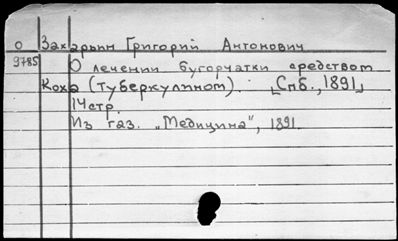 О Захарьин Григорий Антонович
9785 О лечении бугорчатки средством
Коха (туберкулином). [Спб., 1891]
14стр.
Из газ. „Медицина", 1891.